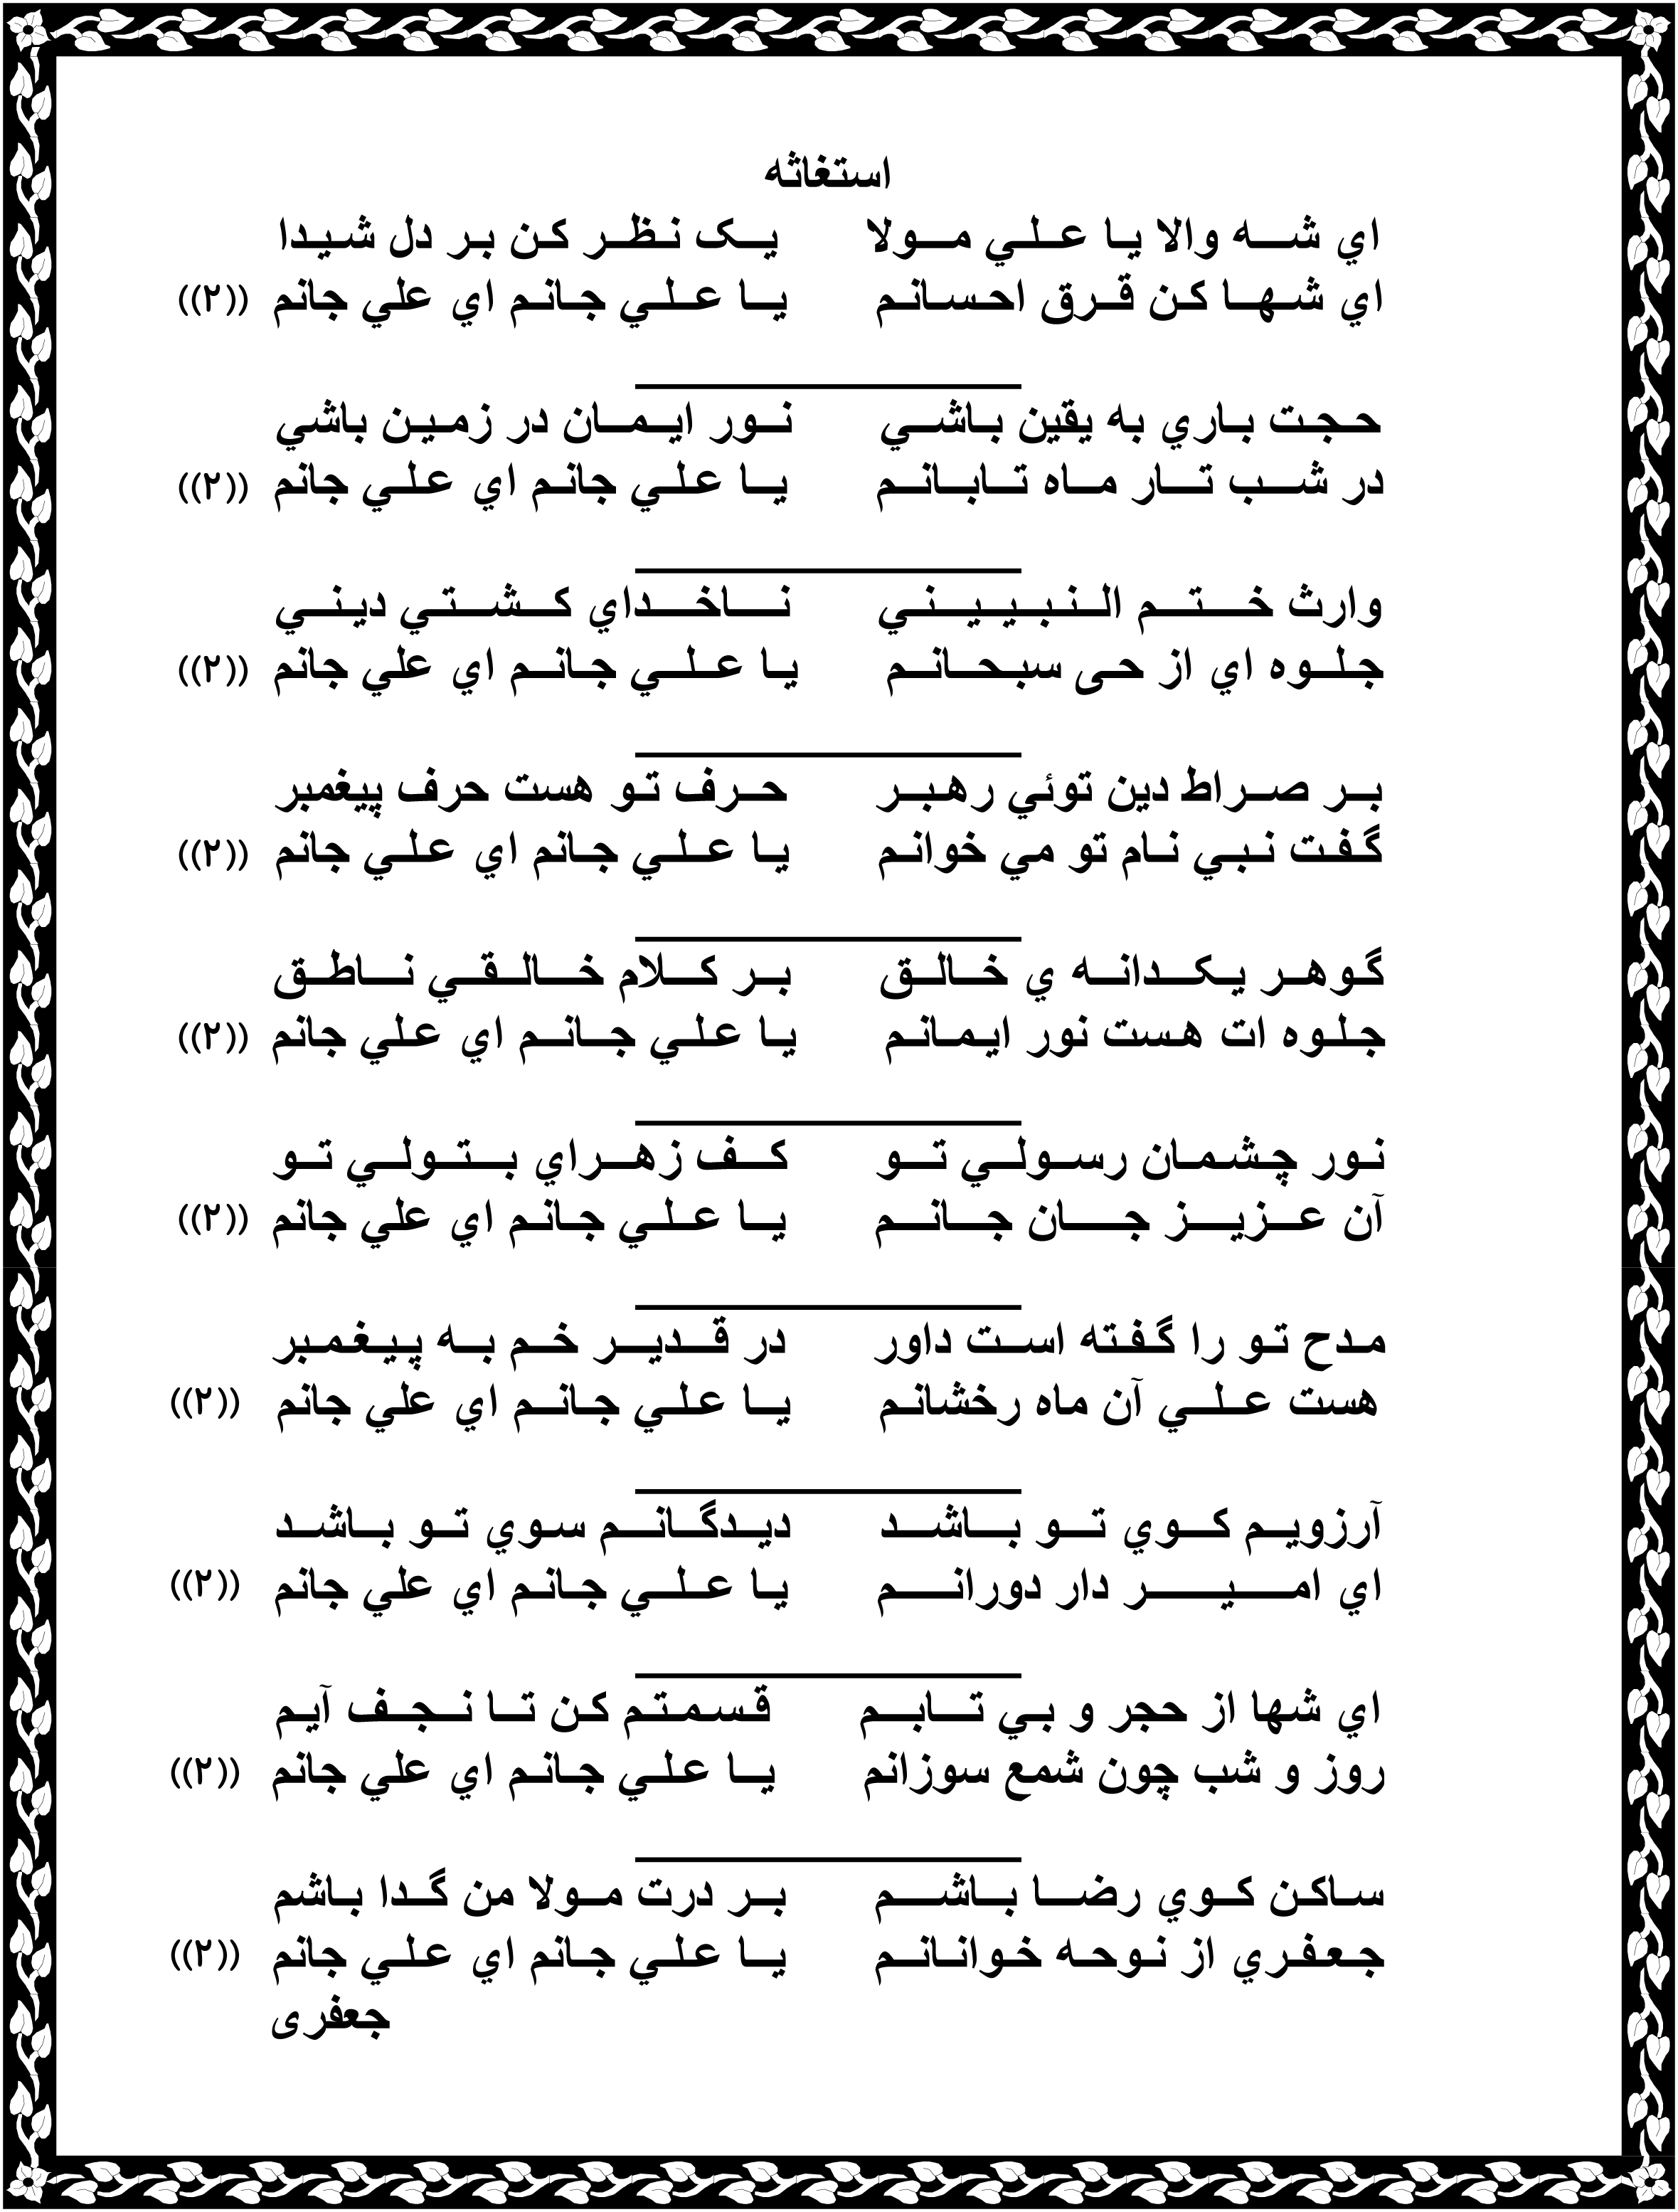 استغاثه
اي شه والا يا علي مولا يک نظر کن بر دل شيدا
اي شها کن قرق احسانم يا علي جانم اي علي جانم ((۲))
حجت باري به يقين باشي نور ايمان در زمين باشي
در شب تار ماه تابانم يا علي جانم اي علي جانم ((۲))
وارث ختم النبييني ناخداي کشتي ديني
جلوه اي از حی سبحانم يا علي جانم اي علي جانم ((۲))
بر صراط دين توئي رهبر حرف تو هست حرف پيغمبر
گفت نبي نام تو مي خوانم يا علي جانم اي علي جانم ((۲))
گوهر يکدانه ي خالق بر کلام خالقي ناطق
جلوه ات هست نور ايمانم يا علي جانم اي علي جانم ((۲))
نور چشمان رسولي تو کف زهراي بتولي تو
آن عزيز جان جانم يا علي جانم اي علي جانم ((۲))
مدح تو را گفته است داور در قدير خم به پيغمبر
هست علي آن ماه رخشانم يا علي جانم اي علي جانم ((۲))
آرزويم کوي تو باشد ديدگانم سوي تو باشد
اي امير دار دورانم يا علي جانم اي علي جانم ((۲))
اي شها از حجر و بي تابم قسمتم کن تا نجف آيم
روز و شب چون شمع سوزانم يا علي جانم اي علي جانم ((۲))
ساکن کوي رضا باشم بر درت مولا من گدا باشم
جعفري از نوحه خوانانم يا علي جانم اي علي جانم ((۲))
جعفری